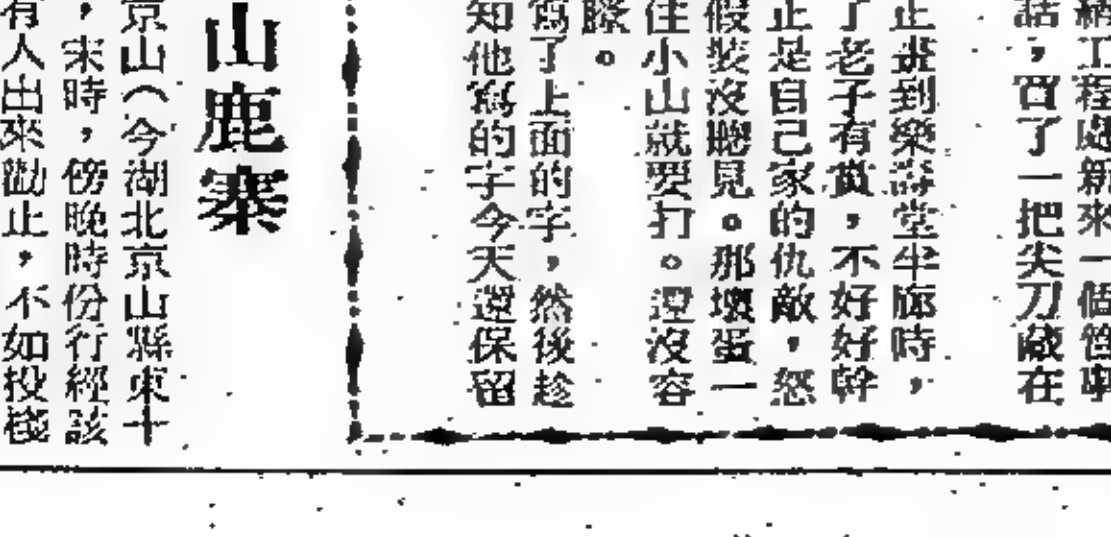 繡工程處新來一個管事
話，買了一把尖刀藏在
正畫到樂壽堂半廊時，
了老子有賞，不好好幹
正是自己家的仇敵，怒
假裝沒聽見。那壞蛋一
住小山就要打。還沒容
膝。
寫了上面的字，然後趁
知他寫的字今天還保留
山鹿寨
京山（今湖北京山縣東十
，宋時，傍晚時份行經該
有人出來勸止，不如投棧